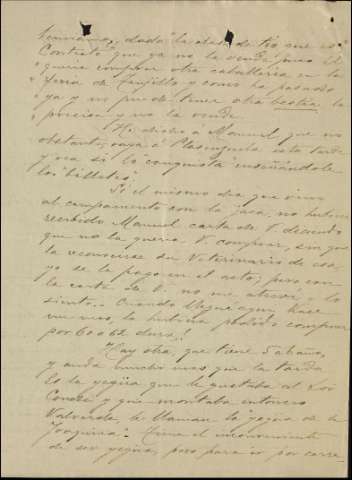 hermana, dada "la clase de tio que es
Contreto" que ya no la vende pues él
queria comprar otra caballeria en la
feria de Trujillo y como ha pasado
ya y no puede tener otra bestia la
precisa y no la vende.
He dicho a Manuel que no
obstante, vaya á Plasenzuela esta tarde
y vea si lo "conquista" enseñándole
los "billetes".
Si el mismo dia que vino
al campamento con la jaca, no hubiera
recibido Manuel carta de V. diciendo
que no la queria V. comprar, sin que
la reconociese un Veterinario de esa,
yo se la pago en el acto; pero con
la carta de V. no me atreví y lo
siento. Cuando llegué aquí hace
un mes, la hubiera podido comprar
por 60 o 62 duros!
Hay otra, que tiene 5 años,
y anda mucho mas que la
Es la yegua que le gustaba al Sor
Conde y que montaba entonces
Valverde, le llaman la "yegua de la
Joaquina". Tiene el inconveniente
de ser yegua, pero para ir por carre